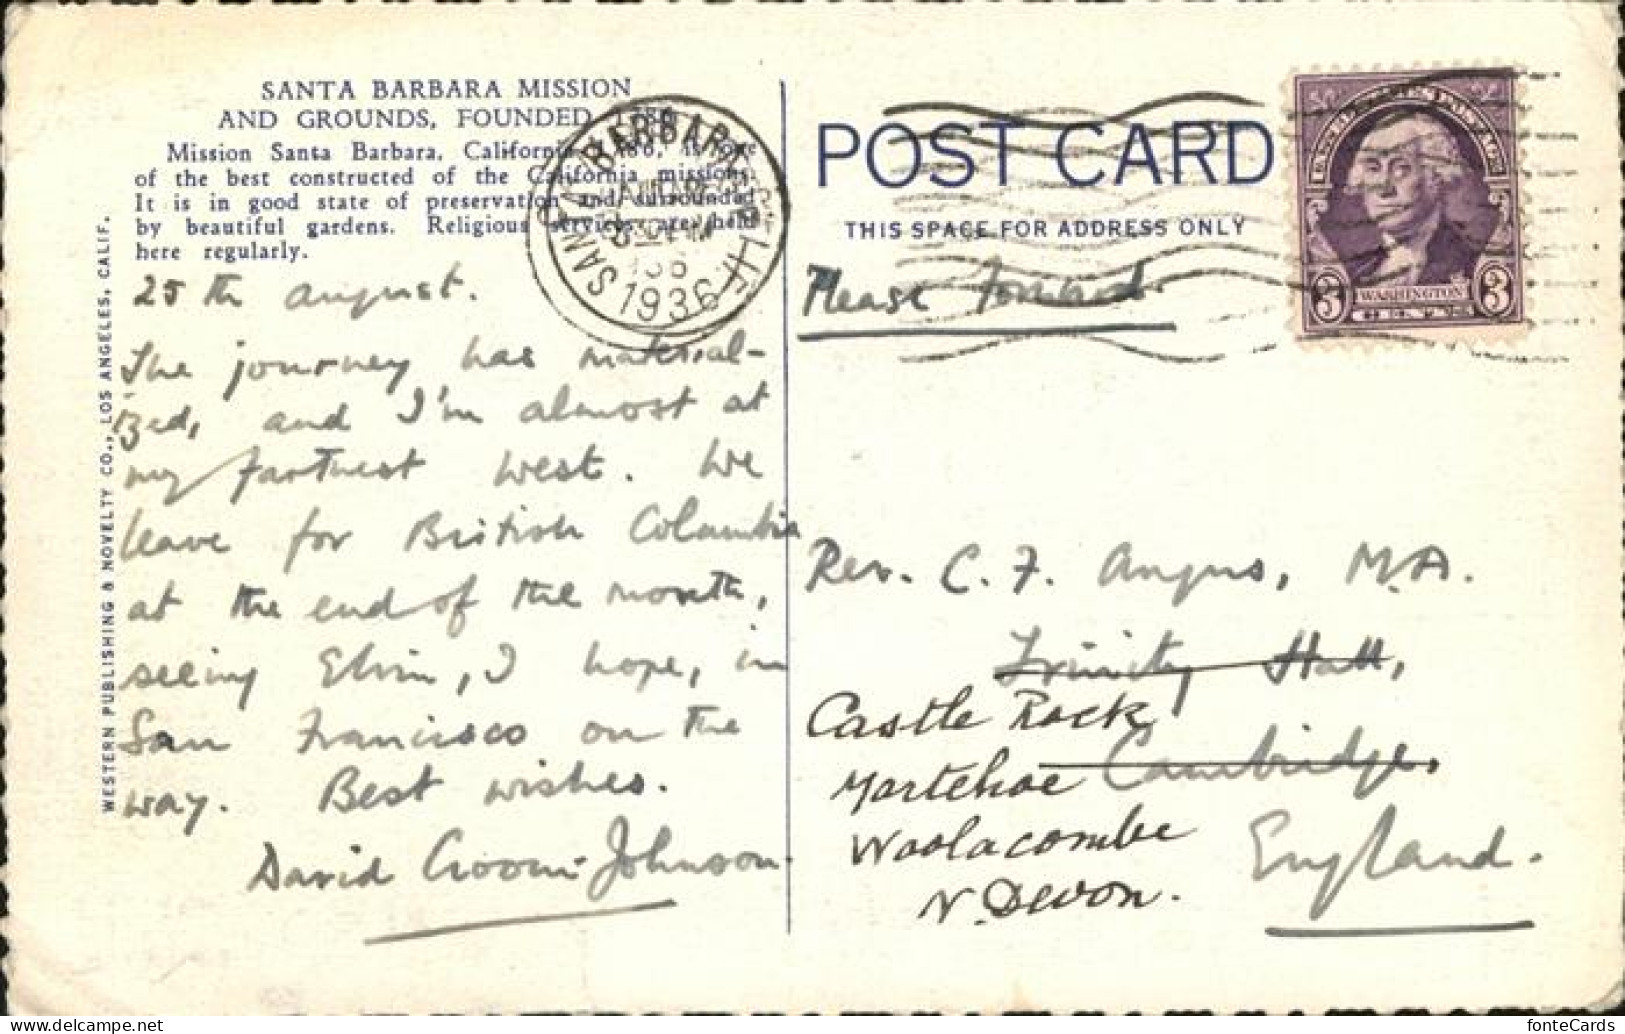 SANTA BARBARA MISSION
AND GROUNDS, FOUNDED 1786
Mission Santa Barbara, California, 1786, is one
of the best constructed of the California missions.
It is in good state of preservation and surrounded
by beautiful gardens. Religious services are held
here regularly.
25th August.
The journey has material-
ized, and I'm almost at
my farthest west. We
leave for British Columbia
at the end of the month,
seeing Elvin, I hope, in
San Francisco on the
way. Best wishes.
David Croom-Johnson.
WESTERN PUBLISHING & NOVELTY CO., LOS ANGELES, CALIF.
SANTA BARBARA CALIF.
1936
POST CARD
THIS SPACE FOR ADDRESS ONLY
UNITED STATES POSTAGE
3 WASHINGTON 3
CENTS
Please forward.
Rev. C. F. Angus, M.A.
Trinity Hall,
Cambridge,
England.
Castle Rock
Mortehoe
Woolacombe
N. Devon.
fonteCards